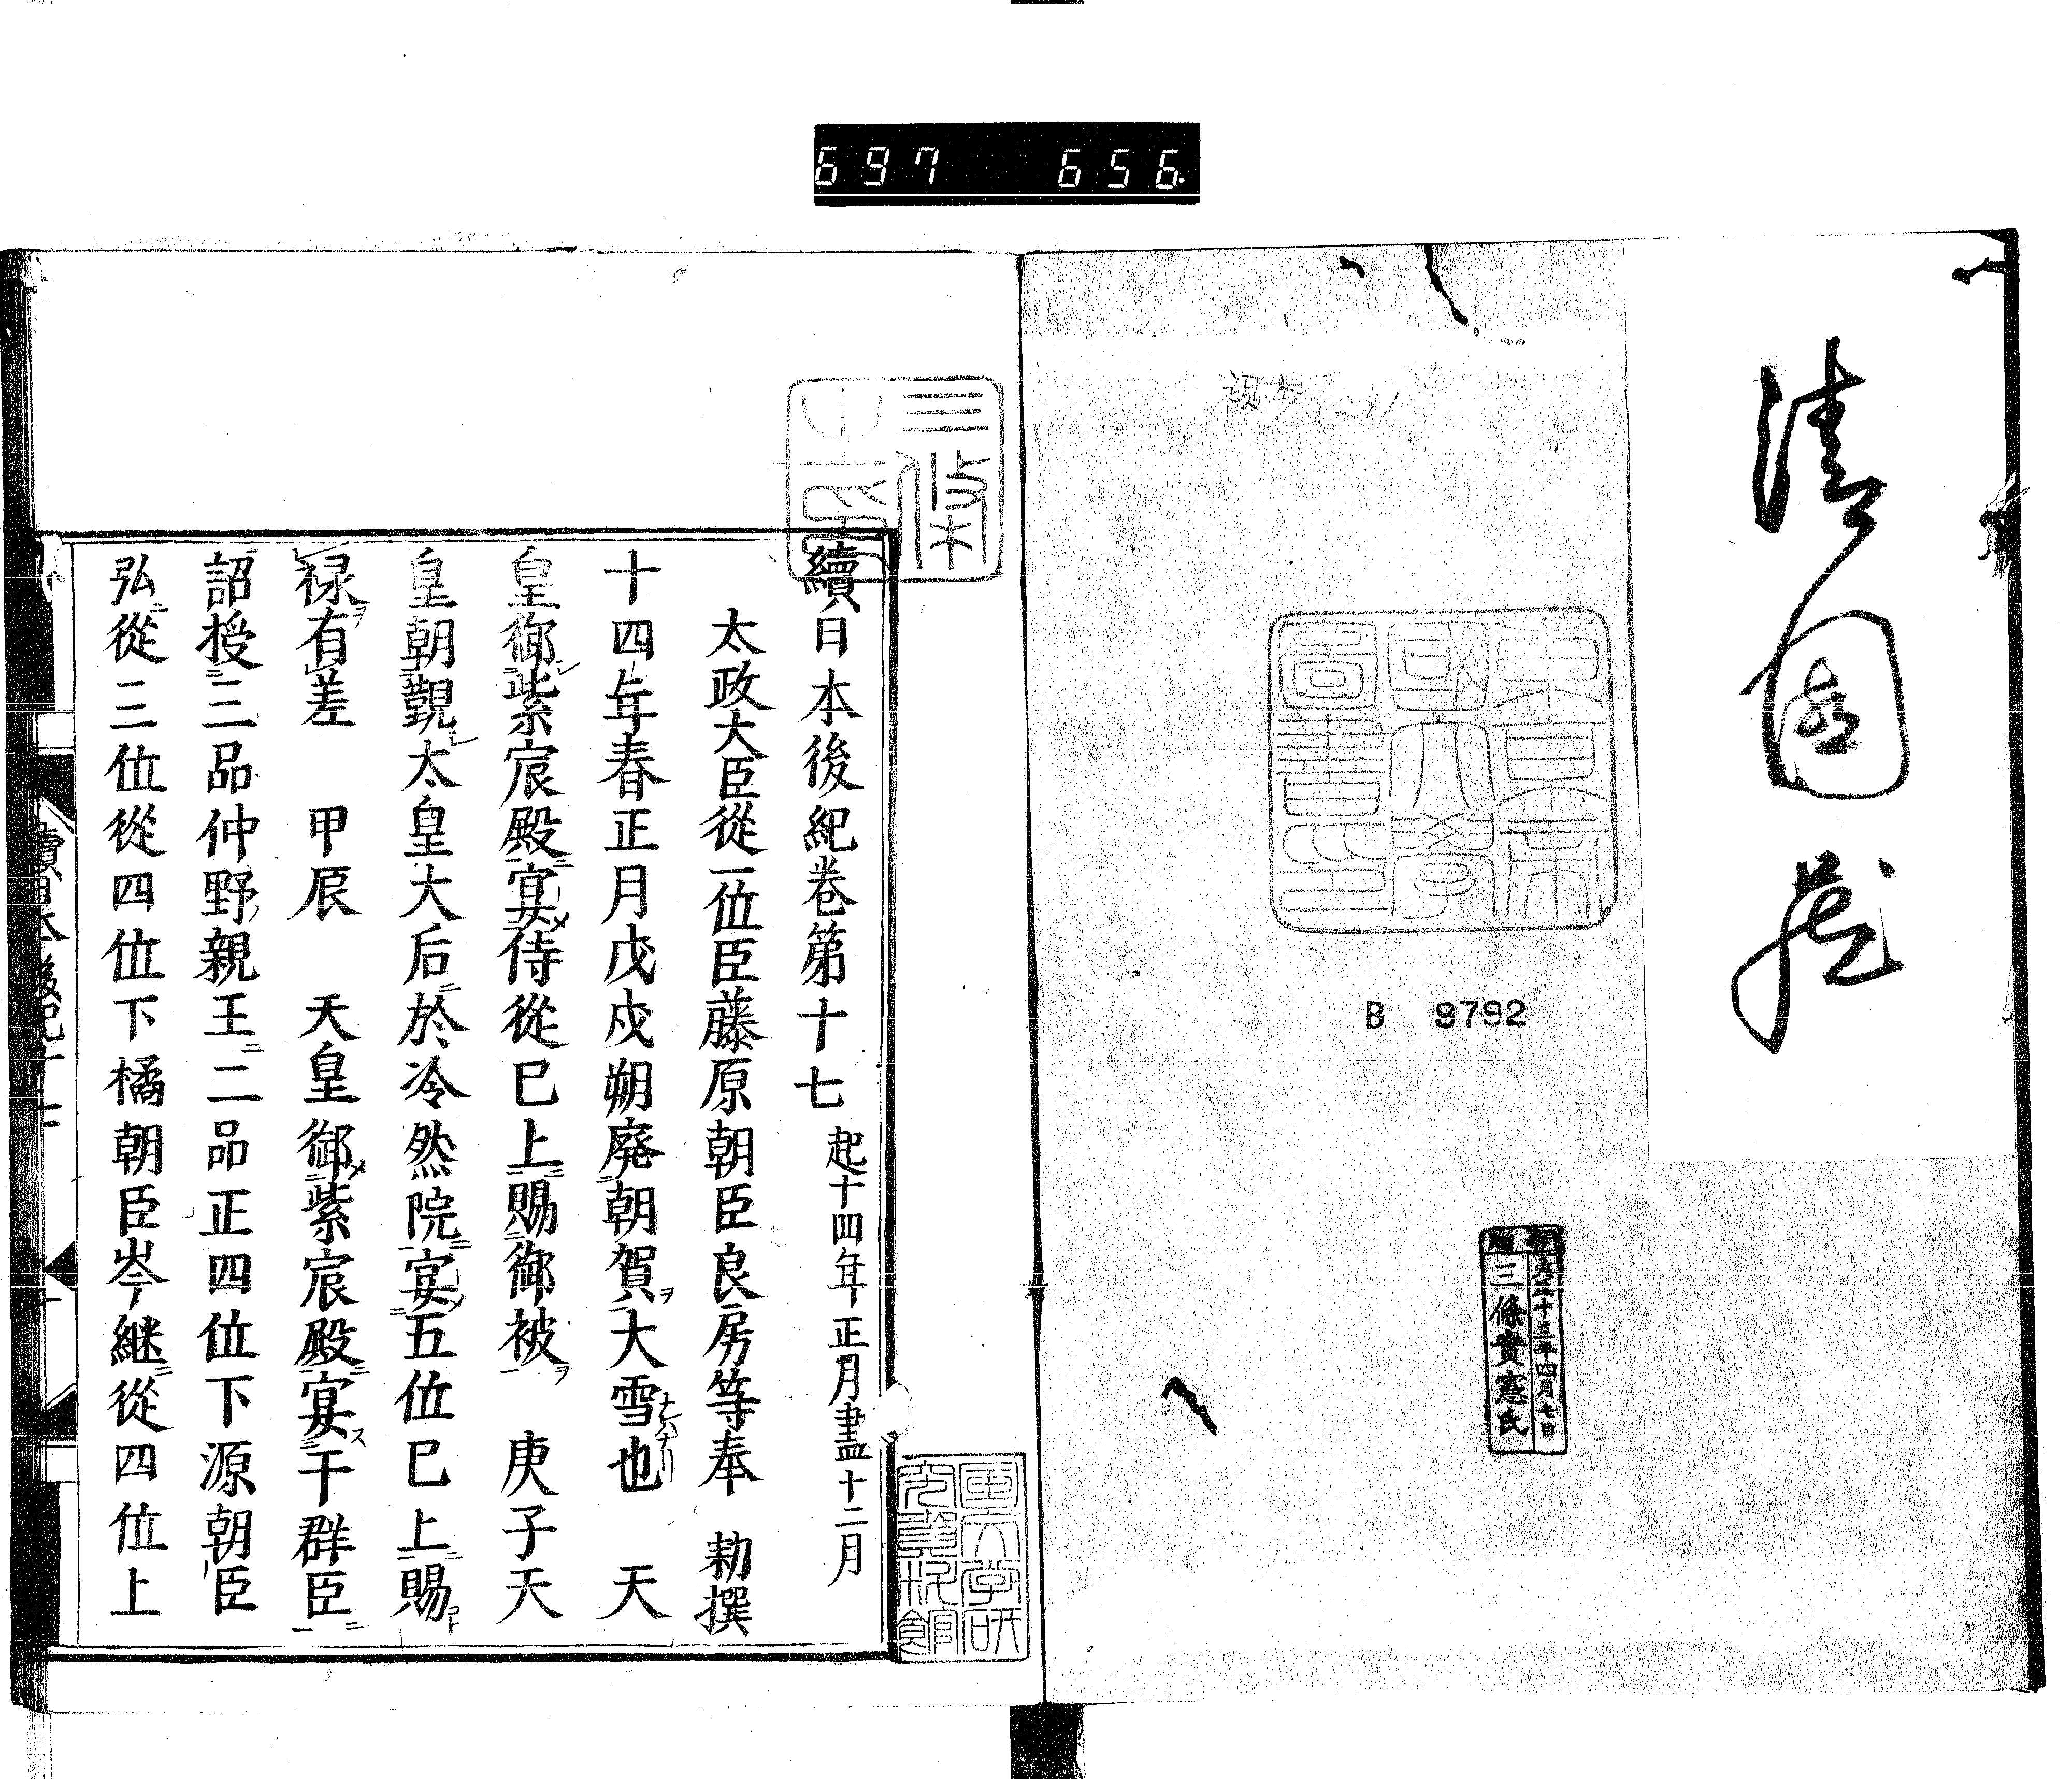 697 656
清園蔵
東京帝
國大學
圖書印
B 9792
大正十三年四月七日
三條實憲氏
寄贈
三條
續日本後紀卷第十七 起十四年正月盡十二月
太政大臣從一位臣藤原朝臣良房等奉 勅撰
十四年春正月戊戌朔廢朝賀ヲ大雪也 天
皇御紫宸殿宴侍從已上賜御被ヲ 庚子天
皇朝覲太皇大后於冷然院宴五位已上賜
禄ヲ有差 甲辰 天皇御紫宸殿宴于群臣
詔授三品仲野親王二品正四位下源朝臣
弘從三位從四位下橘朝臣岑継從四位上
續日本後紀十七